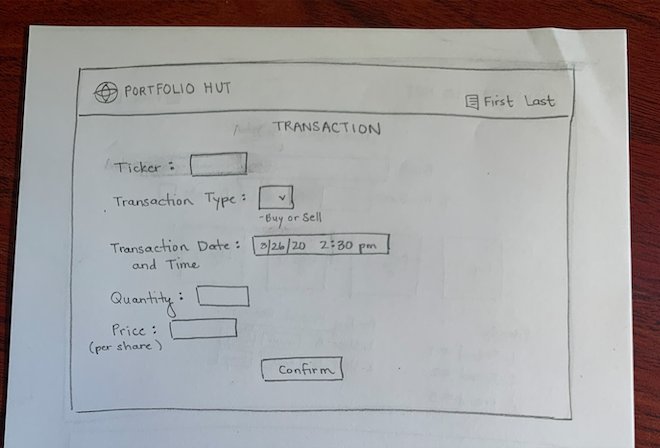 PORTFOLIO HUT
First Last
TRANSACTION
Ticker :
Transaction Type :
-Buy or Sell
Transaction Date : 3/26/20 2:30 pm
and Time
Quantity :
Price :
(per share)
Confirm